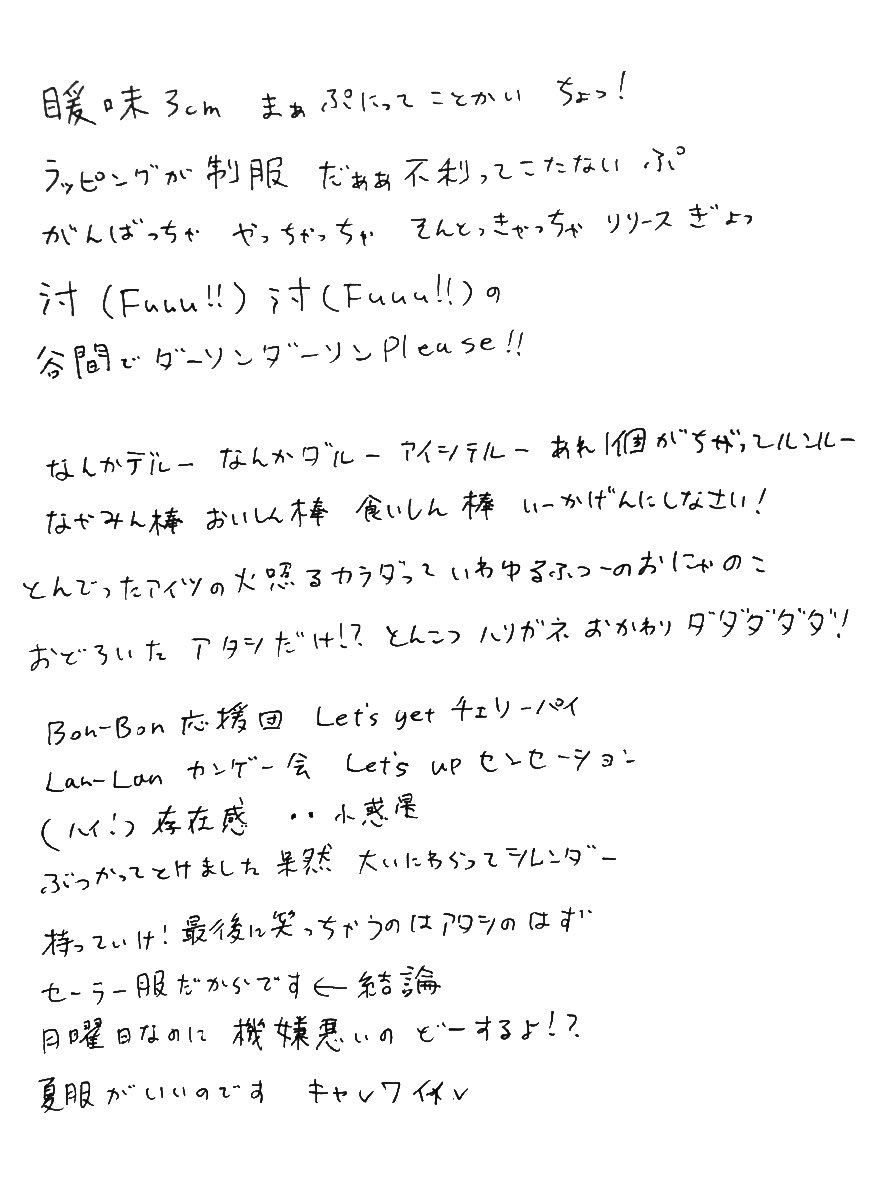 暖味3cm まぁ ぷにってことかい ちょっ!
ラッピングが制服 だぁぁ不利ってこたない ぷ
がんばっちゃ やっちゃっちゃ そんとっきゃっちゃ リリース ぎょっ
汁(Fuuu!!)汁(Fuuu!!)の
谷間でダーリンダーリンPlease!!
なんかデルー なんかダルー アイシテルー あれ1個がちがってルンルー
なやみん棒 おいしん棒 食いしん棒 いーかげんにしなさい!
とんでったアイツの火照るカラダって いわゆるふつーのおにゃのこ
おどろいた アタシだけ!? とんこつ ハリガネ おかわり ダダダダダ!
Bon-Bon 応援団 Let's get チェリーパイ
Lan-Lan カンゲー会 Let's up センセーション
(ハイ!) 存在感 ・・小惑星
ぶつかってとけました 呆然 大いにわらってシレンダー
持っていけ! 最後に笑っちゃうのはアタシのはず
セーラー服だからです←結論
月曜日なのに 機嫌悪いの どーするよ!?
夏服がいいのです キャ∨ワイイ∨